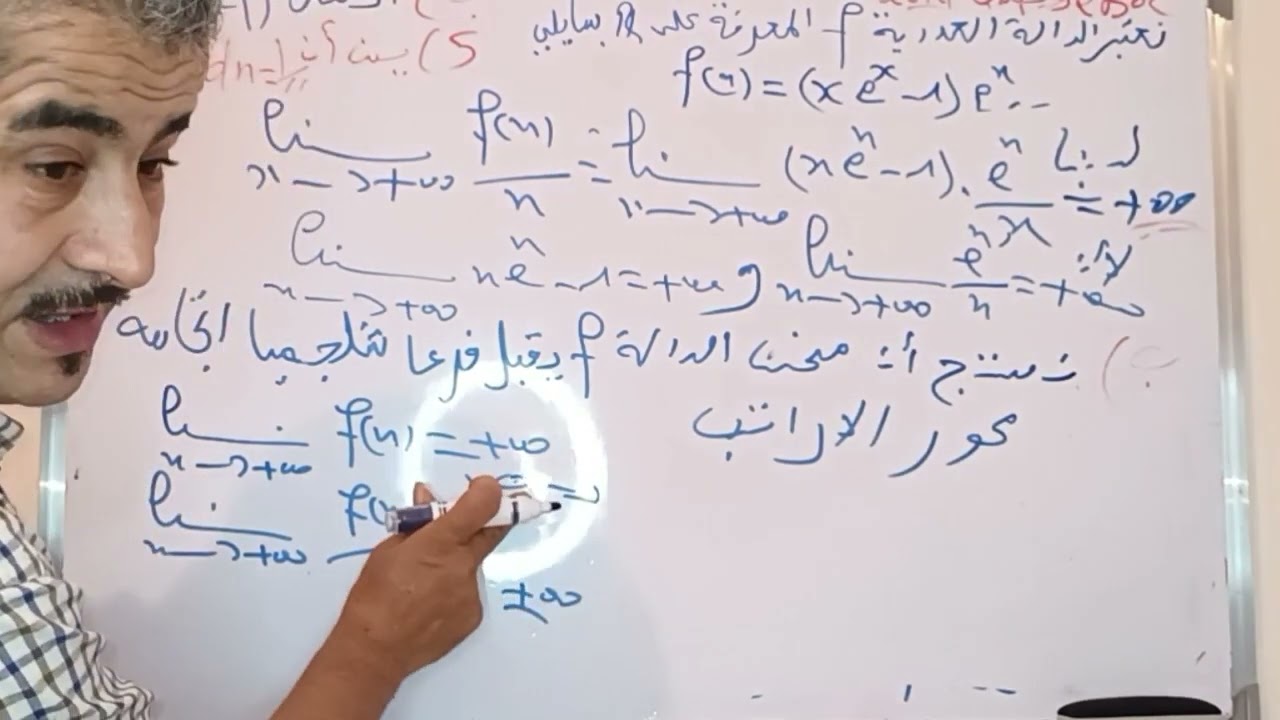 5) بين أن
نعتبر الدالة العددية f المعرفة على ℝ بمايلي
f(x) = (x e^x - 1) e^x ..
لدينا lim x→+∞ f(x)/x = lim x→+∞ (x e^x - 1). e^x/x = +∞
لأن lim x→+∞ x e^x - 1 = +∞ و lim x→+∞ e^x/x = +∞
ب) نستنتج أن منحنى الدالة f يقبل فرعا شلجميا اتجاهه
محور الأراتيب
lim x→+∞ f(x) = +∞
lim x→+∞ f(x
±∞